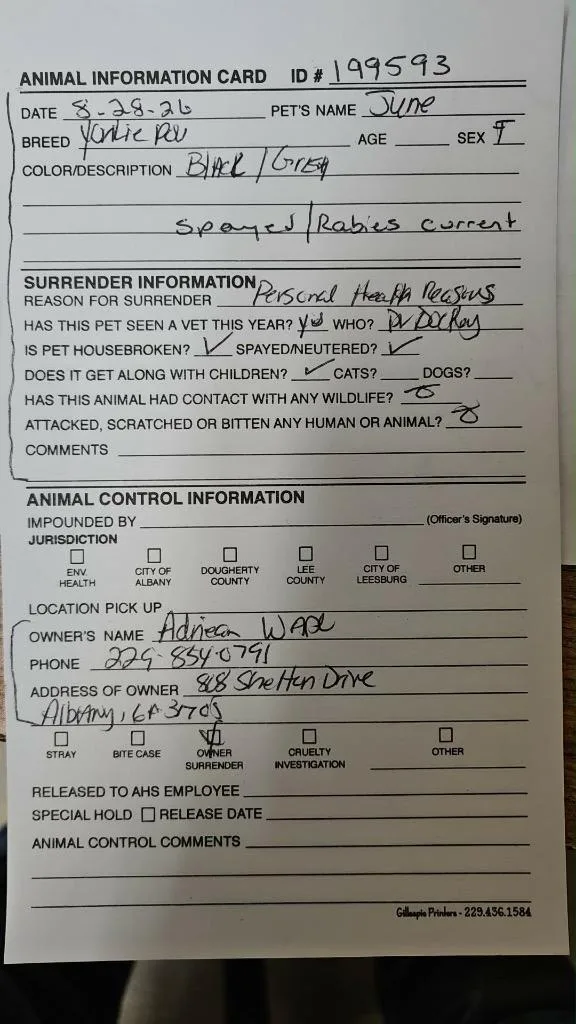 ANIMAL INFORMATION CARD ID # 199593
DATE 8-28-26 PET'S NAME June
BREED Yorkie Poo AGE SEX F
COLOR/DESCRIPTION Black/Grey
Spayed/Rabies current
SURRENDER INFORMATION
REASON FOR SURRENDER Personal Health Reasons
HAS THIS PET SEEN A VET THIS YEAR? yes WHO? Dr
IS PET HOUSEBROKEN? ✓ SPAYED/NEUTERED? ✓
DOES IT GET ALONG WITH CHILDREN? ✓ CATS? DOGS?
HAS THIS ANIMAL HAD CONTACT WITH ANY WILDLIFE?
ATTACKED, SCRATCHED OR BITTEN ANY HUMAN OR ANIMAL?
COMMENTS
ANIMAL CONTROL INFORMATION
IMPOUNDED BY (Officer's Signature)
JURISDICTION
ENV. HEALTH CITY OF ALBANY DOUGHERTY COUNTY LEE COUNTY CITY OF LEESBURG OTHER
LOCATION PICK UP
OWNER'S NAME
PHONE 229-854-0791
ADDRESS OF OWNER Drive
Albany, GA 31705
STRAY BITE CASE OWNER SURRENDER CRUELTY INVESTIGATION OTHER
RELEASED TO AHS EMPLOYEE
SPECIAL HOLD RELEASE DATE
ANIMAL CONTROL COMMENTS
Gillespie Printers - 229.436.1584